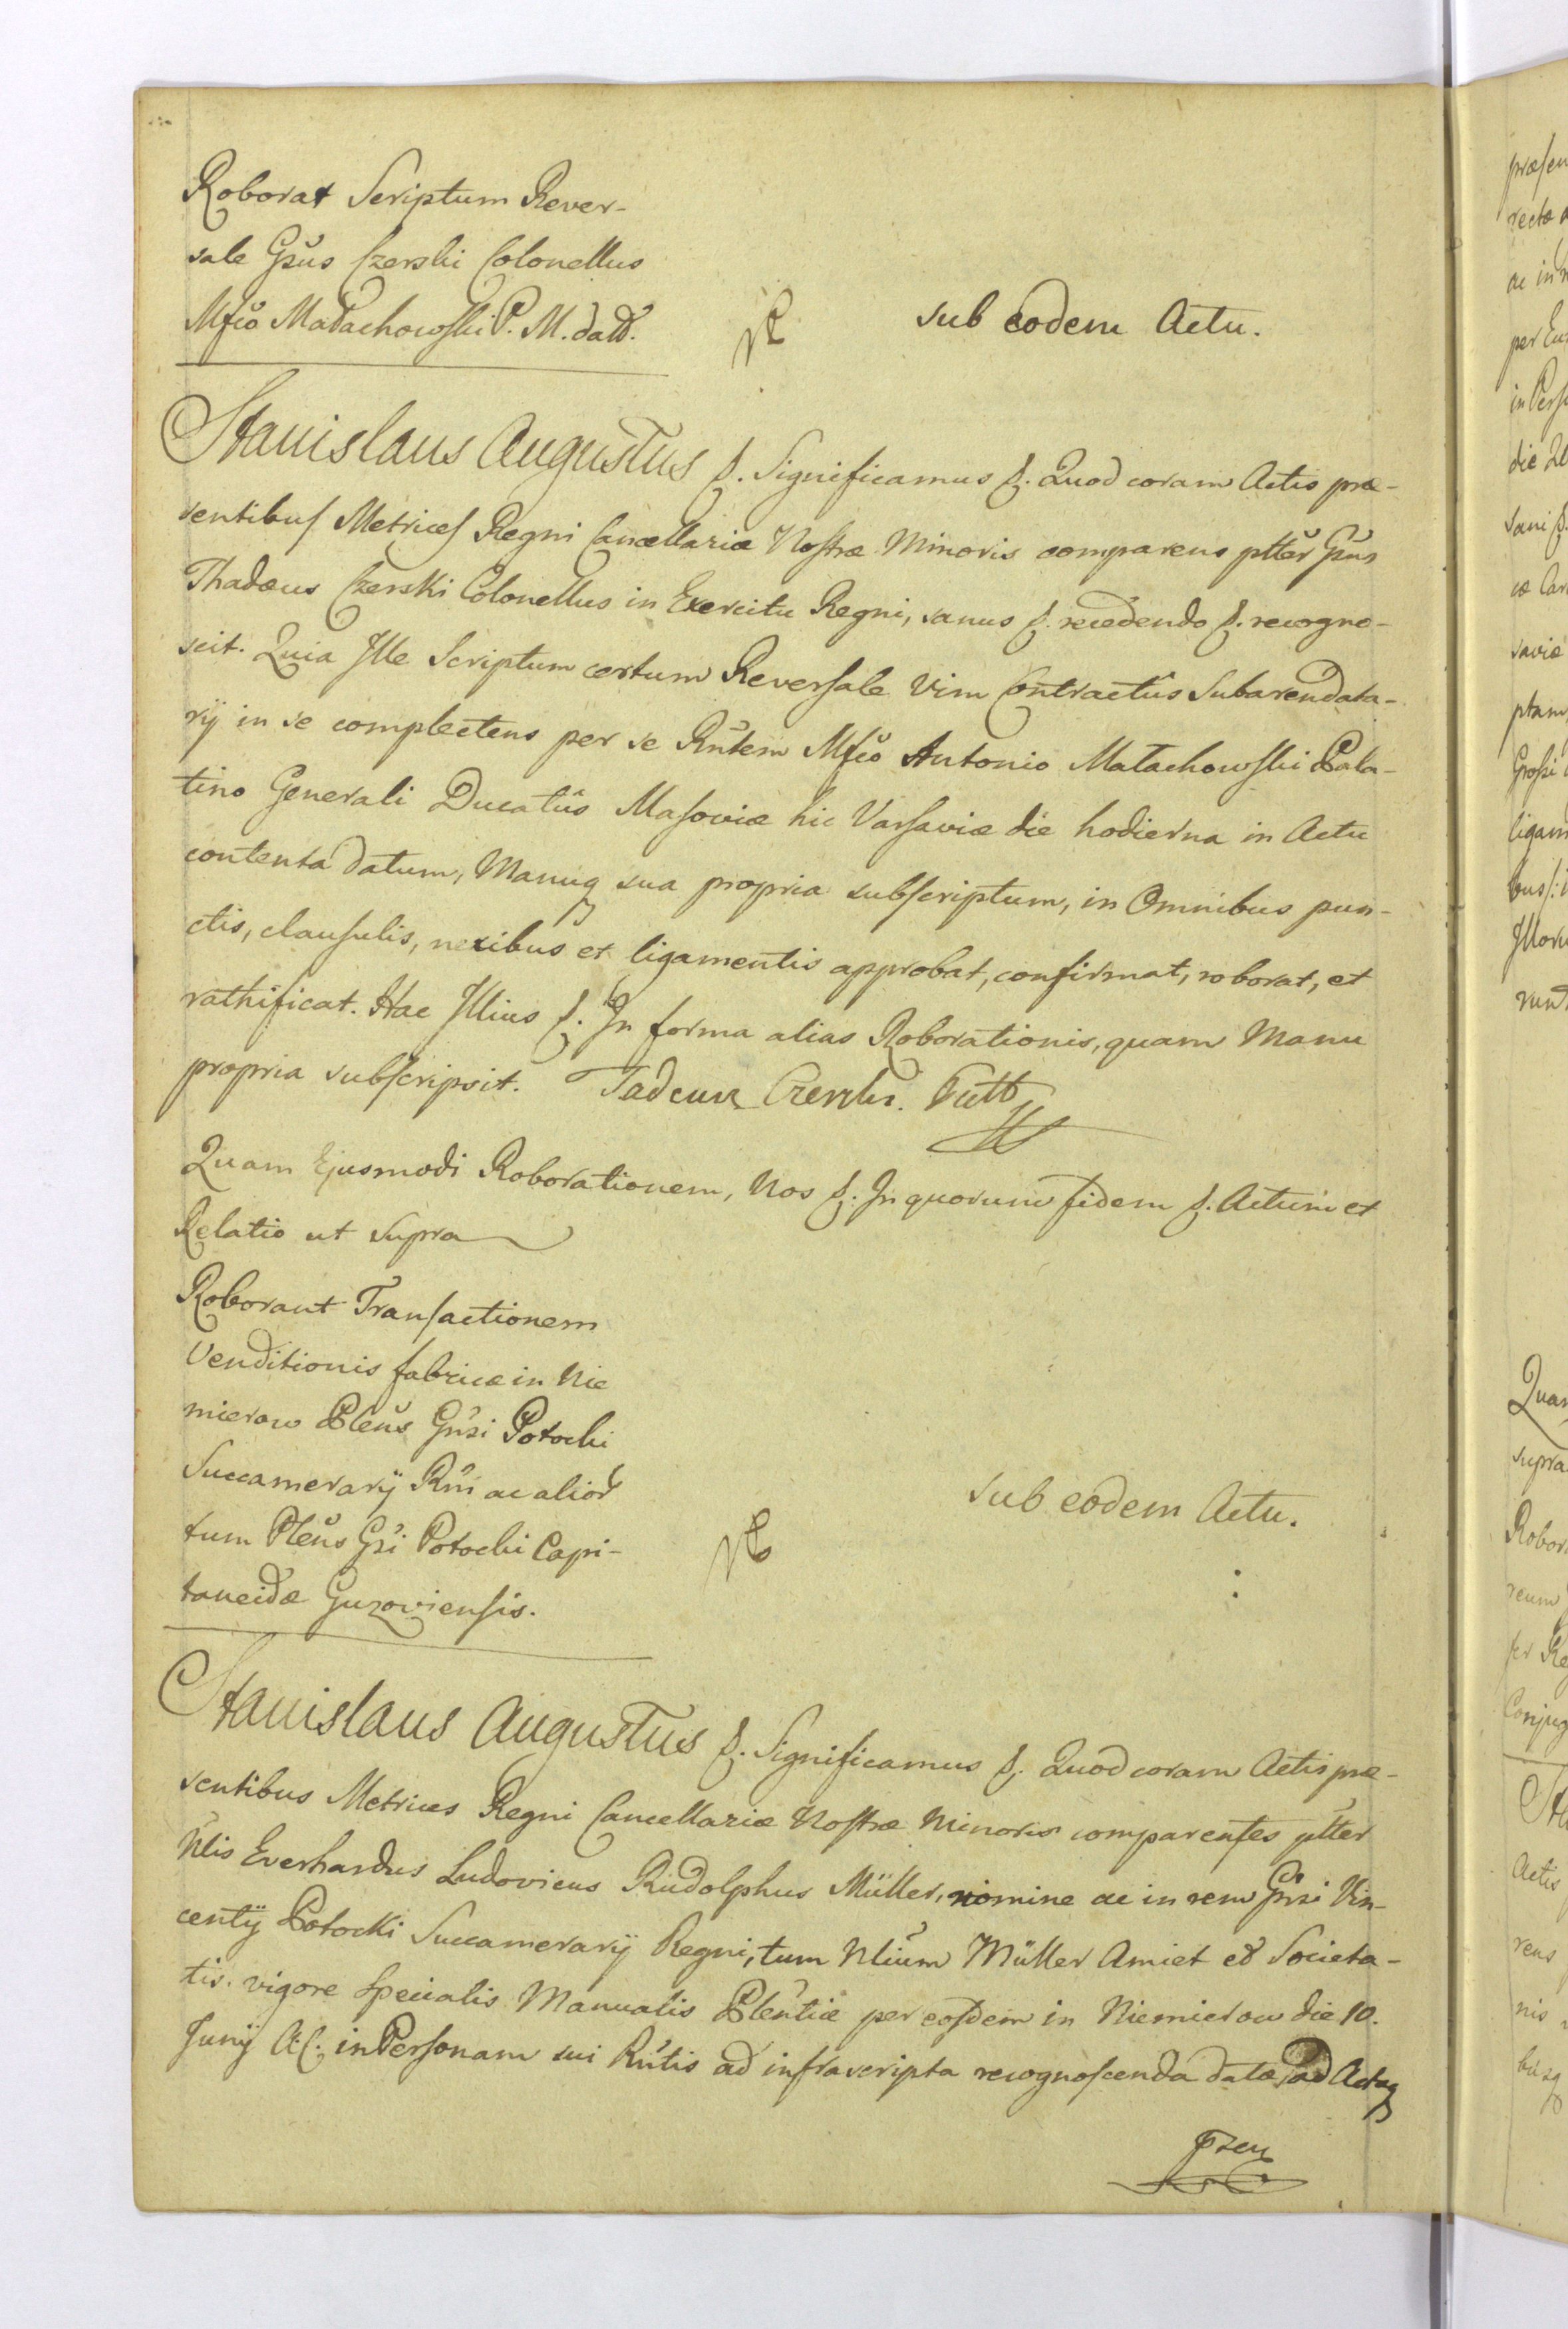 Roborat Scriptum Rever-
sale Gsus Czerski Colonellus
Mfco Małachowski P. M. datt.
sub eodem Actu.
Stanislaus Augustus &. Significamus &. Quod coram Actis præ-
sentibus Metrices Regni Cancellariæ Nostræ Minoris comparens ptter Gsus
Thadæus Czerski Colonellus in Exercitu Regni, sanus &. recedendo &. recogno-
scit. Quia Ille Scriptum certum Reversale Vim Contractûs Subarendata-
rij in se complectens per se Rntem Mfco Antonio Małachowski Pala-
tino Generali Ducatûs Masoviæ hic Varsaviæ die hodierna in Actu
contenta datum, Manuq sua propria subscriptum, in Omnibus pun-
ctis, clausulis, nexibus et ligamentis approbat, confirmat, roborat, et
rathificat. Hac Illius &. In forma alias Roborationis, quam Manu
propria subscripsit. Tadeusz Czerski.
Quam Ejusmodi Roborationem, Nos &. In quorum fidem &. Actum et
Relatio ut supra
Roborant Transactionem
Venditionis fabricæ in Nie
mierow Plens Gnsi Potocki
Succamerarij Rni ac alior
tum Plens Gsi Potocki Capi-
taneidæ Guzoviensis.
sub eodem Actu.
Stanislaus Augustus &. Significamus &. Quod coram Actis præ-
sentibus Metrices Regni Cancellariæ Nostræ Minoris comparentes ptter
Nlis Everhardus Ludovicus Rudolphus Müller, nomine ac in rem Gnsi Vin-
centij Potocki Succamerarij Regni, tum Nlium Müller Amiet et Societa-
tis. vigore specialis Manualis Plentiæ per eosdem in Niemierow die 10.
Junij A. C. in Personam sui Rntis ad infrascripta recognoscenda datæ ad Actaq